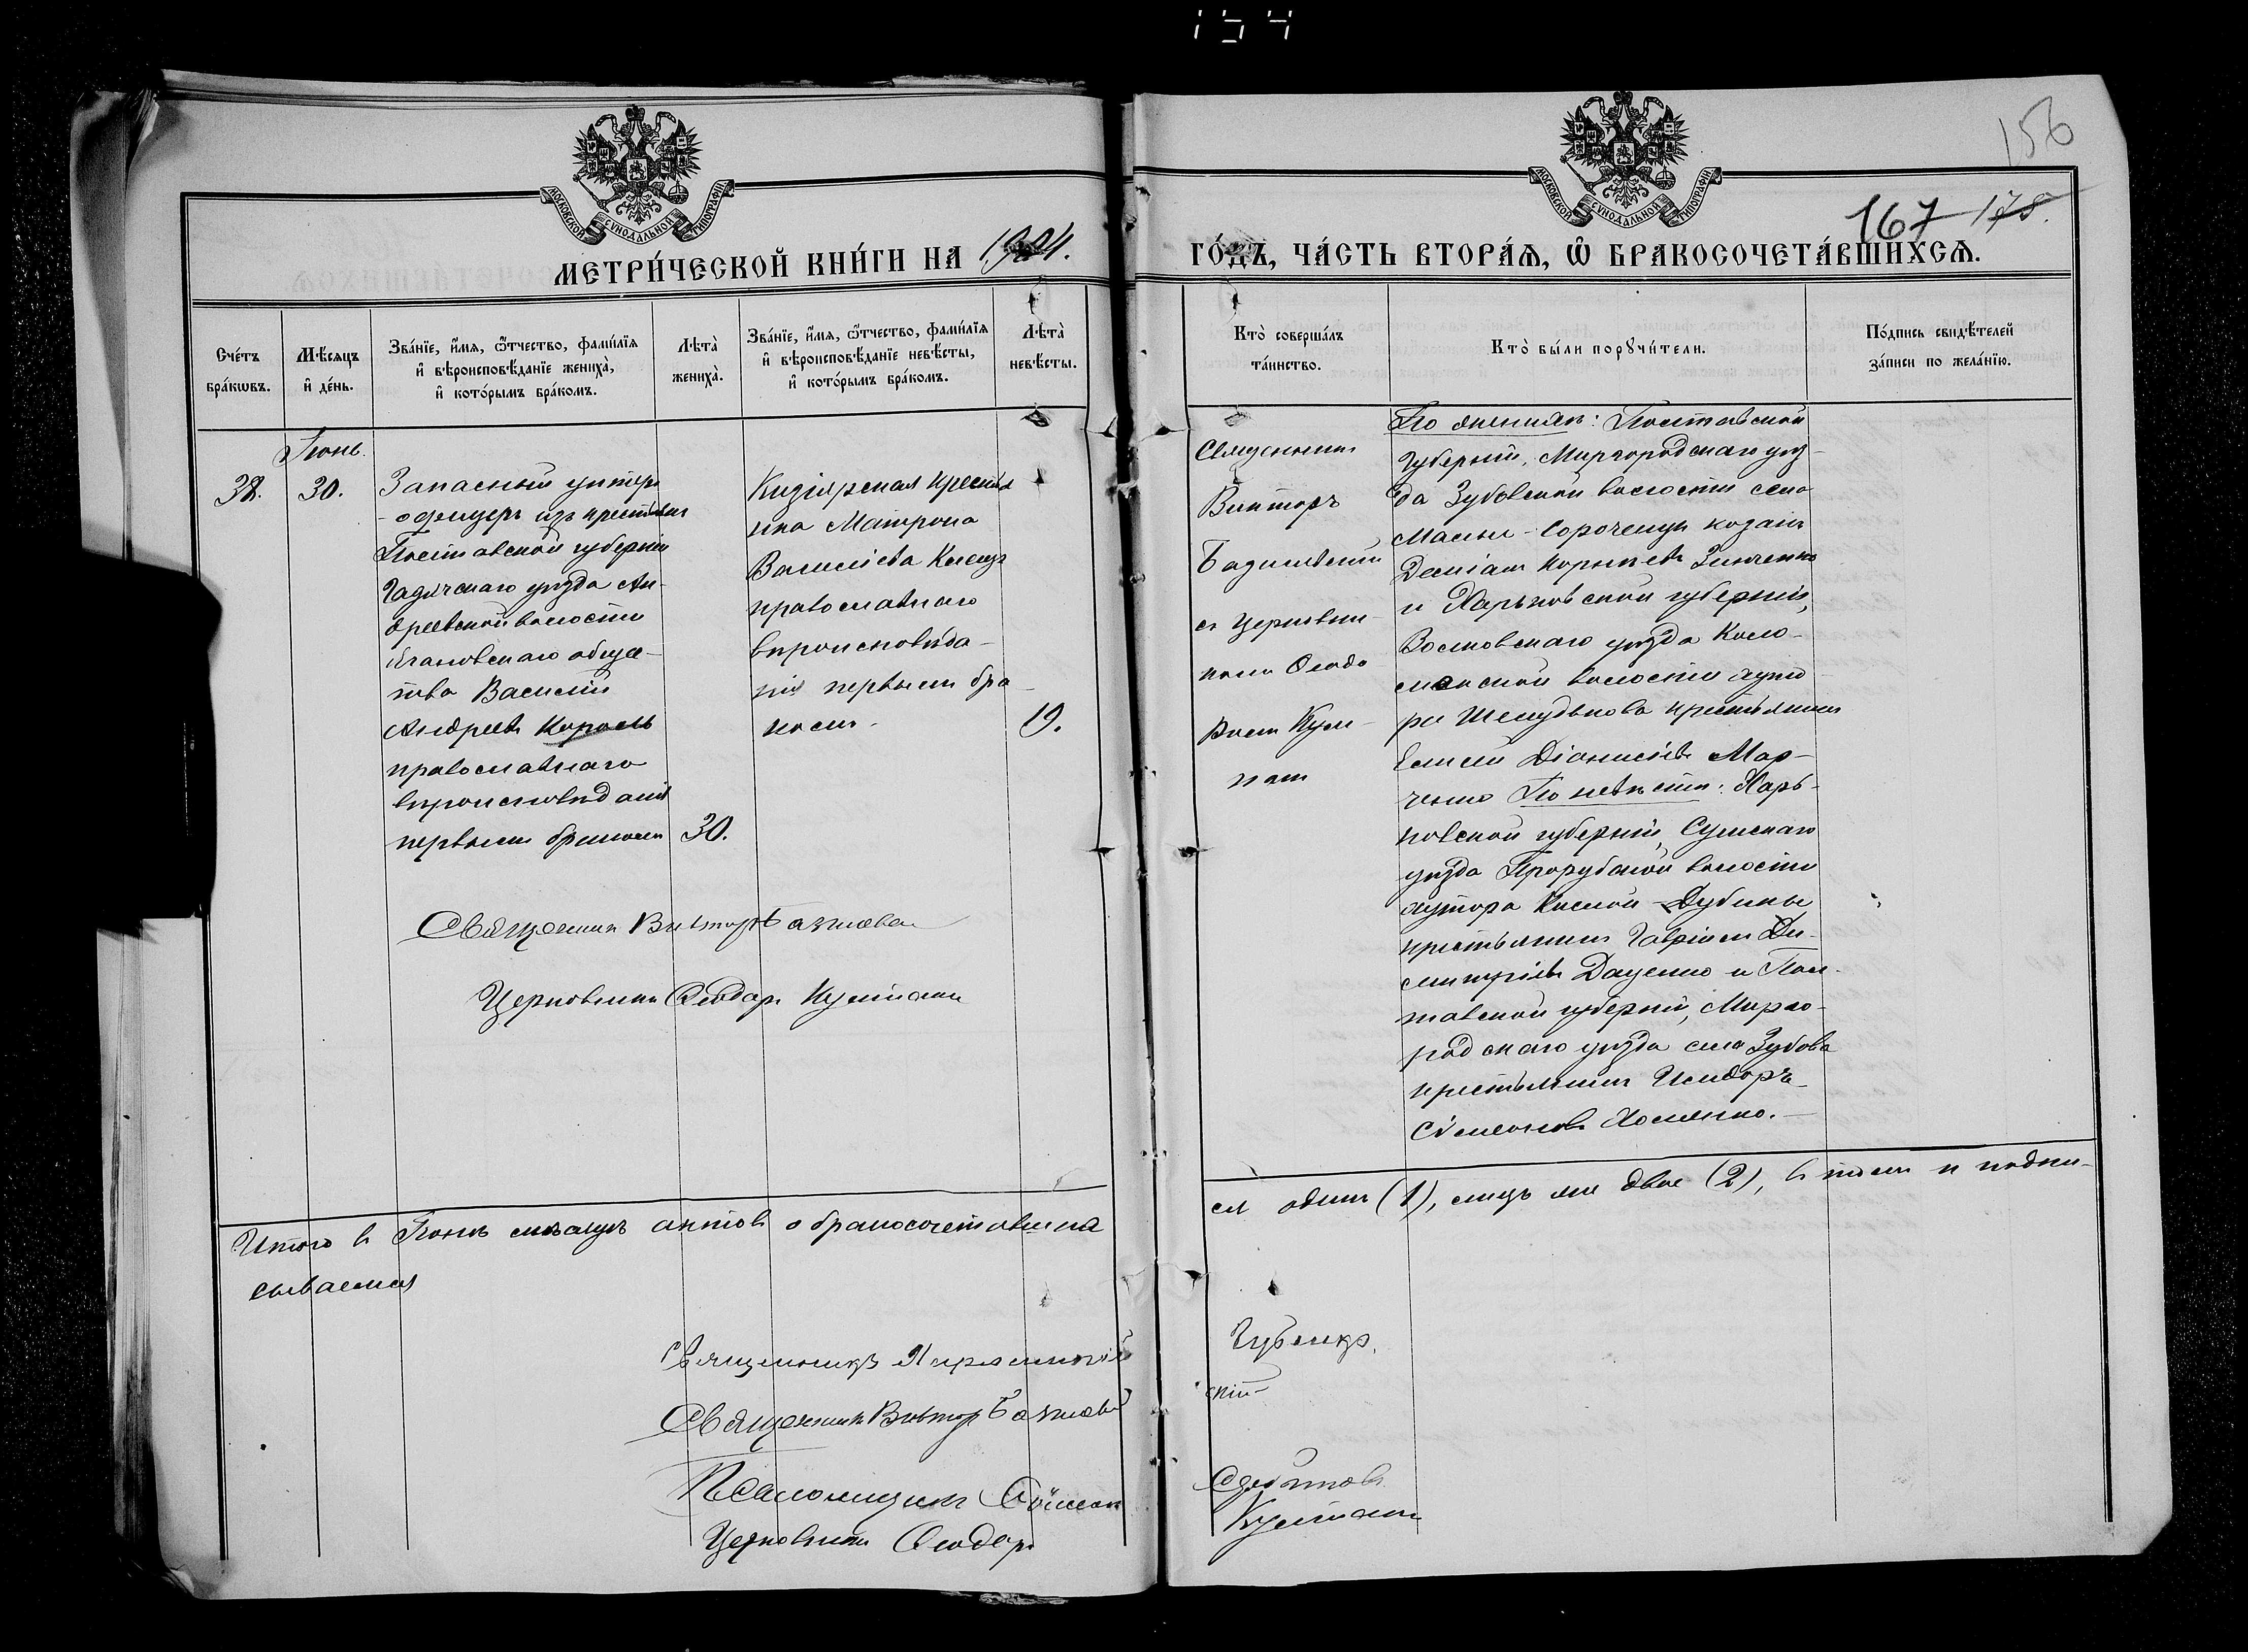 154
156
167 178.
МОСКОВСКОЙ СѴНОДАЛЬНОЙ ТИПОГРАФІИ
МОСКОВСКОЙ СѴНОДАЛЬНОЙ ТИПОГРАФІИ
МЕТРИ́ЧЕСКОЙ КНИ́ГИ НА 1904.
ГО́ДЪ, ЧА́СТЬ ВТОРА́Я, Ѡ БРАКОСОЧЕТА́ВШИХСЯ.
Сче́тъ
бра́кѡвъ.
Мѣ́сяцъ
и де́нь.
Зва́нїе, и́мя, ѻ́тчество, фами́лїя
и вѣроисповѣ́данїе жениха̀,
и кото́рымъ бра́комъ.
Лѣта̀
жениха̀.
Зва́нїе, и́мя, ѻ́тчество, фами́лїя
и вѣроисповѣ́данїе невѣ́сты,
и кото́рымъ бра́комъ.
Лѣта̀
невѣ́сты.
Кто̀ соверша́лъ
та́инство.
Кто̀ бы́ли порꙋчи́тели.
По́дпись свидѣ́телей
за́писи по жела́нїю.
Іюнь.
38.
30.
Запасный унтеръ
-офицеръ изъ крестьянъ
Полтавской губерніи
Гадячскаго уѣзда Ан-
дреевской волости
общес-
тва Василій
Андреевъ Король
православнаго
вѣроисповѣданія
первымъ бракомъ
30.
крестья
нка Матрона
Василіева
православнаго
вѣроисповѣда-
нія первымъ бра-
комъ.
19.
Священникъ
Викторъ
съ церковни-
комъ Ѳеодо
ромъ
По женихѣ: Полтавской
губерніи, Миргородскаго уѣз-
да Зубовской волости села
Малыя-Сорочинцы козакъ
Даміанъ Корнѣевъ Зинченко
и Харьковской губерніи,
Волковскаго уѣзда Коло-
макской волости хуто
ра крестьянинъ
Елисей Діонисіевъ Мар-
ченко По невѣстѣ: Харь-
ковской губерніи, Сумскаго
уѣзда волости
хутора Кислой-Дубины
крестьянинъ Гавріилъ Ди-
митріевъ Даценко и Пол-
тавской губерніи, Мирго-
родскаго уѣзда села Зубова
крестьянинъ Исидоръ
Сѵмеоновъ Хоменко.
Священникъ Викторъ
Церковникъ Ѳеодоръ
Итого въ Іюнѣ мѣсяцѣ актовъ о бракосочетавших
ся одинъ (1), лицъ же двое (2), въ томъ и подпи-
сываемся
Священникъ
Священникъ Викторъ
Псаломщикъ Сѵмеон
Церковникъ Ѳеодоръ